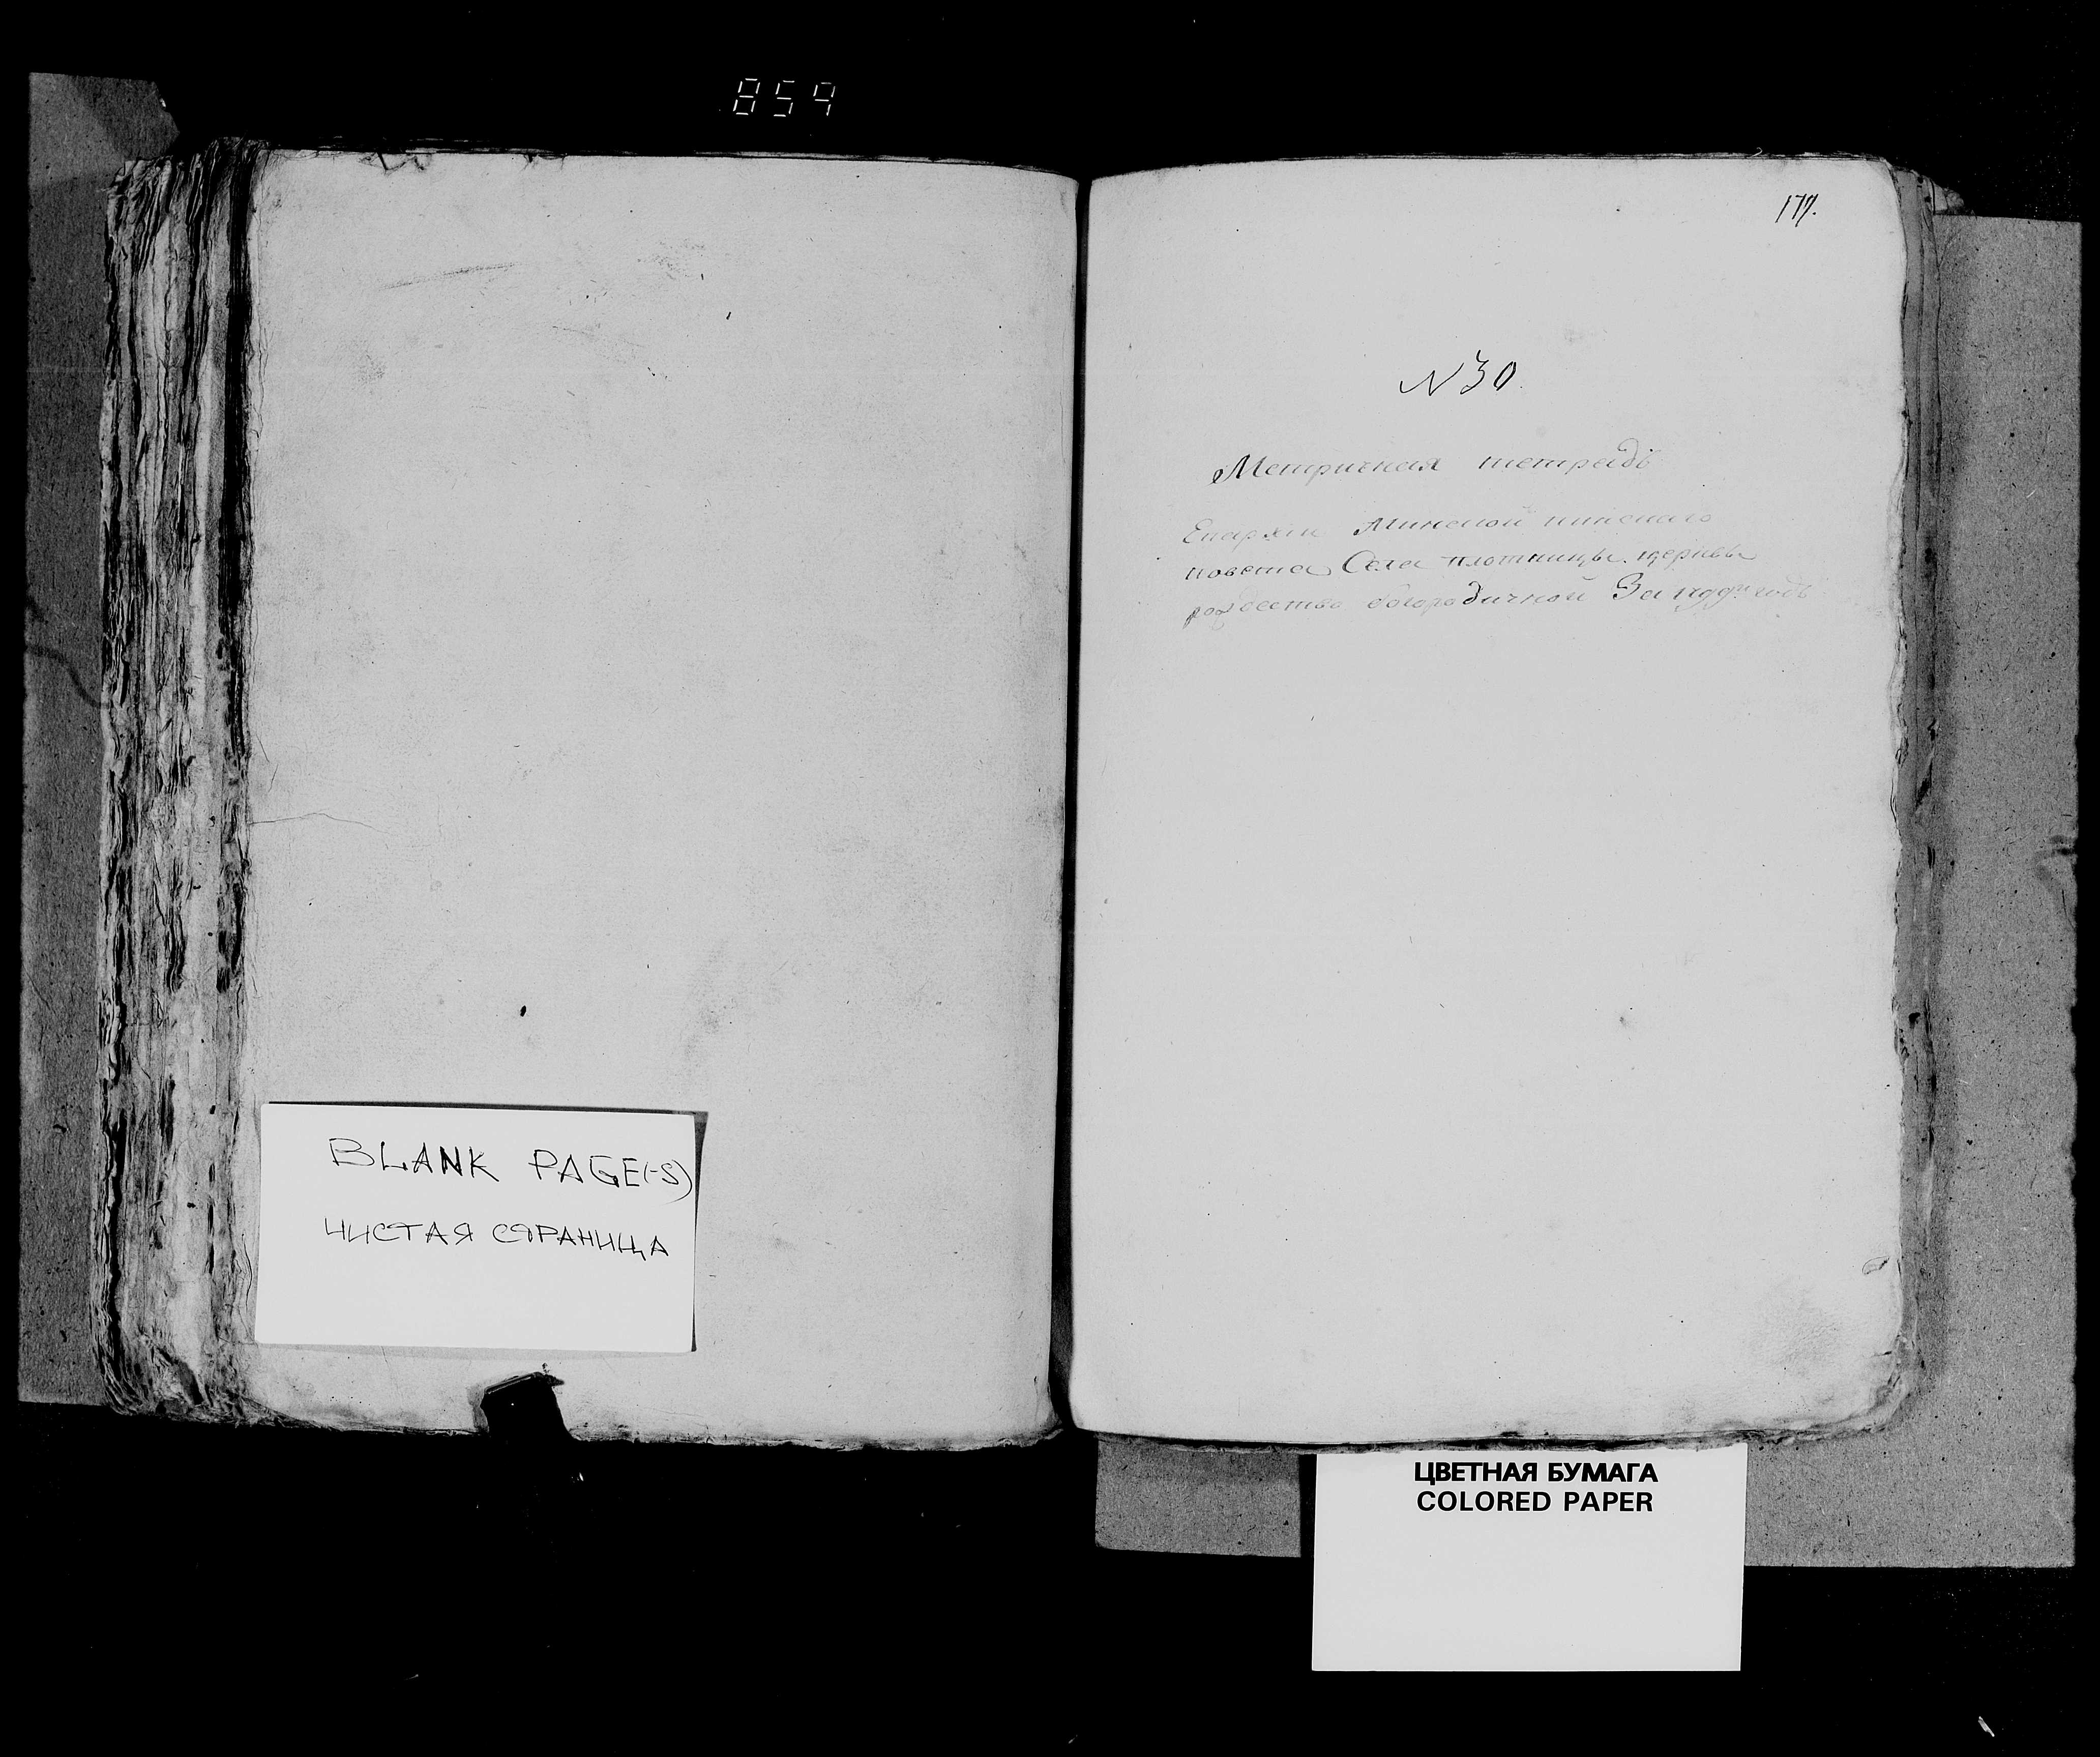 859
177.
N 30.
Метричная тетрадь
Епархіи Минской пинскаго
повета Села плотницы церквы
рождество богородичной За 1799 годъ
BLANK PAGE(-S)
ЧИСТАЯ СТРАНИЦА
ЦВЕТНАЯ БУМАГА
COLORED PAPER